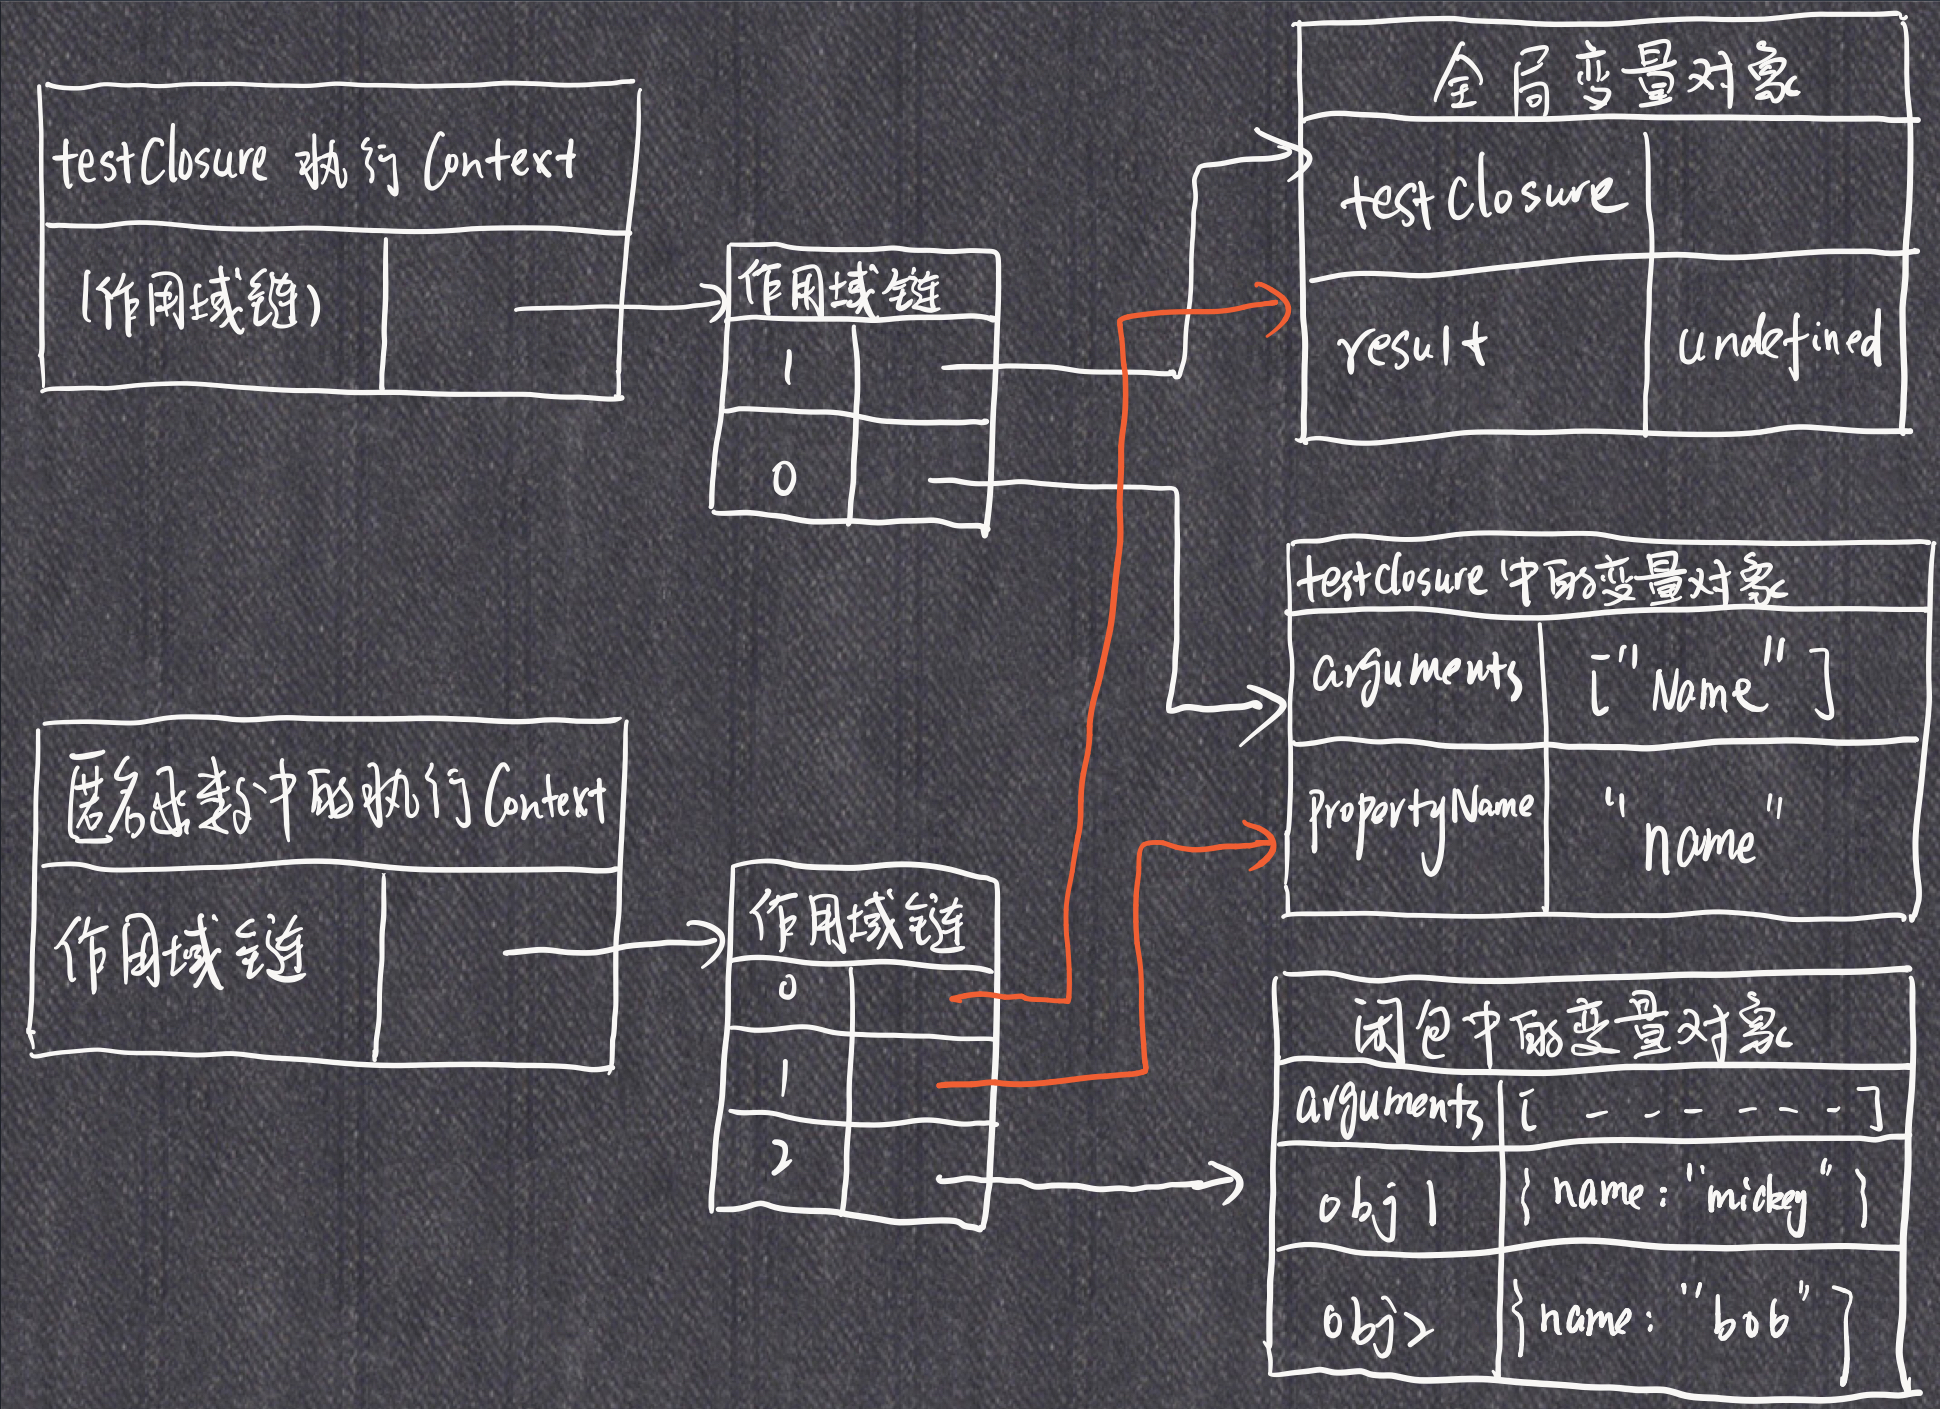 testClosure 执行 Context
(作用域链)
作用域链
1
0
全局变量对象
testClosure
result undefined
testClosure 中的变量对象
arguments ["Name"]
propertyName "name"
匿名函数中的执行 Context
作用域链
作用域链
0
1
2
闭包中的变量对象
arguments [ - - - - - - ]
obj1 { name: "mickey" }
obj2 { name: "bob" }